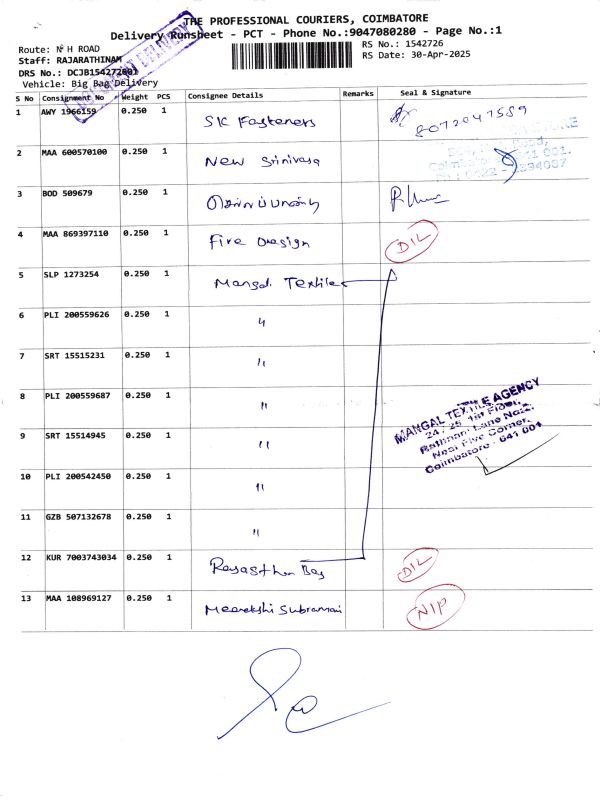 THE PROFESSIONAL COURIERS, COIMBATORE
Delivery Runsheet - PCT - Phone No.:9047080280 - Page No.:1
Route: N H ROAD
RS No.: 1542726
Staff: RAJARATHINAM
RS Date: 30-Apr-2025
DRS No.: DCJB154272601
Vehicle: Big Bag Delivery
S No Consignment No Weight PCS Consignee Details Remarks Seal & Signature
1 AWY 1966159 0.250 1 SK Fasteners 8072047589
2 MAA 600570100 0.250 1 New Srinivasa
3 BOD 509679 0.250 1
4 MAA 869397110 0.250 1 Fire Design D/L
5 SLP 1273254 0.250 1 Mangal Textiles
6 PLI 200559626 0.250 1 "
7 SRT 15515231 0.250 1 "
8 PLI 200559687 0.250 1 "
9 SRT 15514945 0.250 1 "
10 PLI 200542450 0.250 1 "
11 GZB 507132678 0.250 1 "
MANGAL TEXTILE AGENCY
24, 25 1st Floor,
Rathnam Lane No:2,
Near Five Corner,
Coimbatore - 641 001
12 KUR 7003743034 0.250 1 Rajasthan Bag D/L
13 MAA 108969127 0.250 1 Meenakshi Subramani N/P